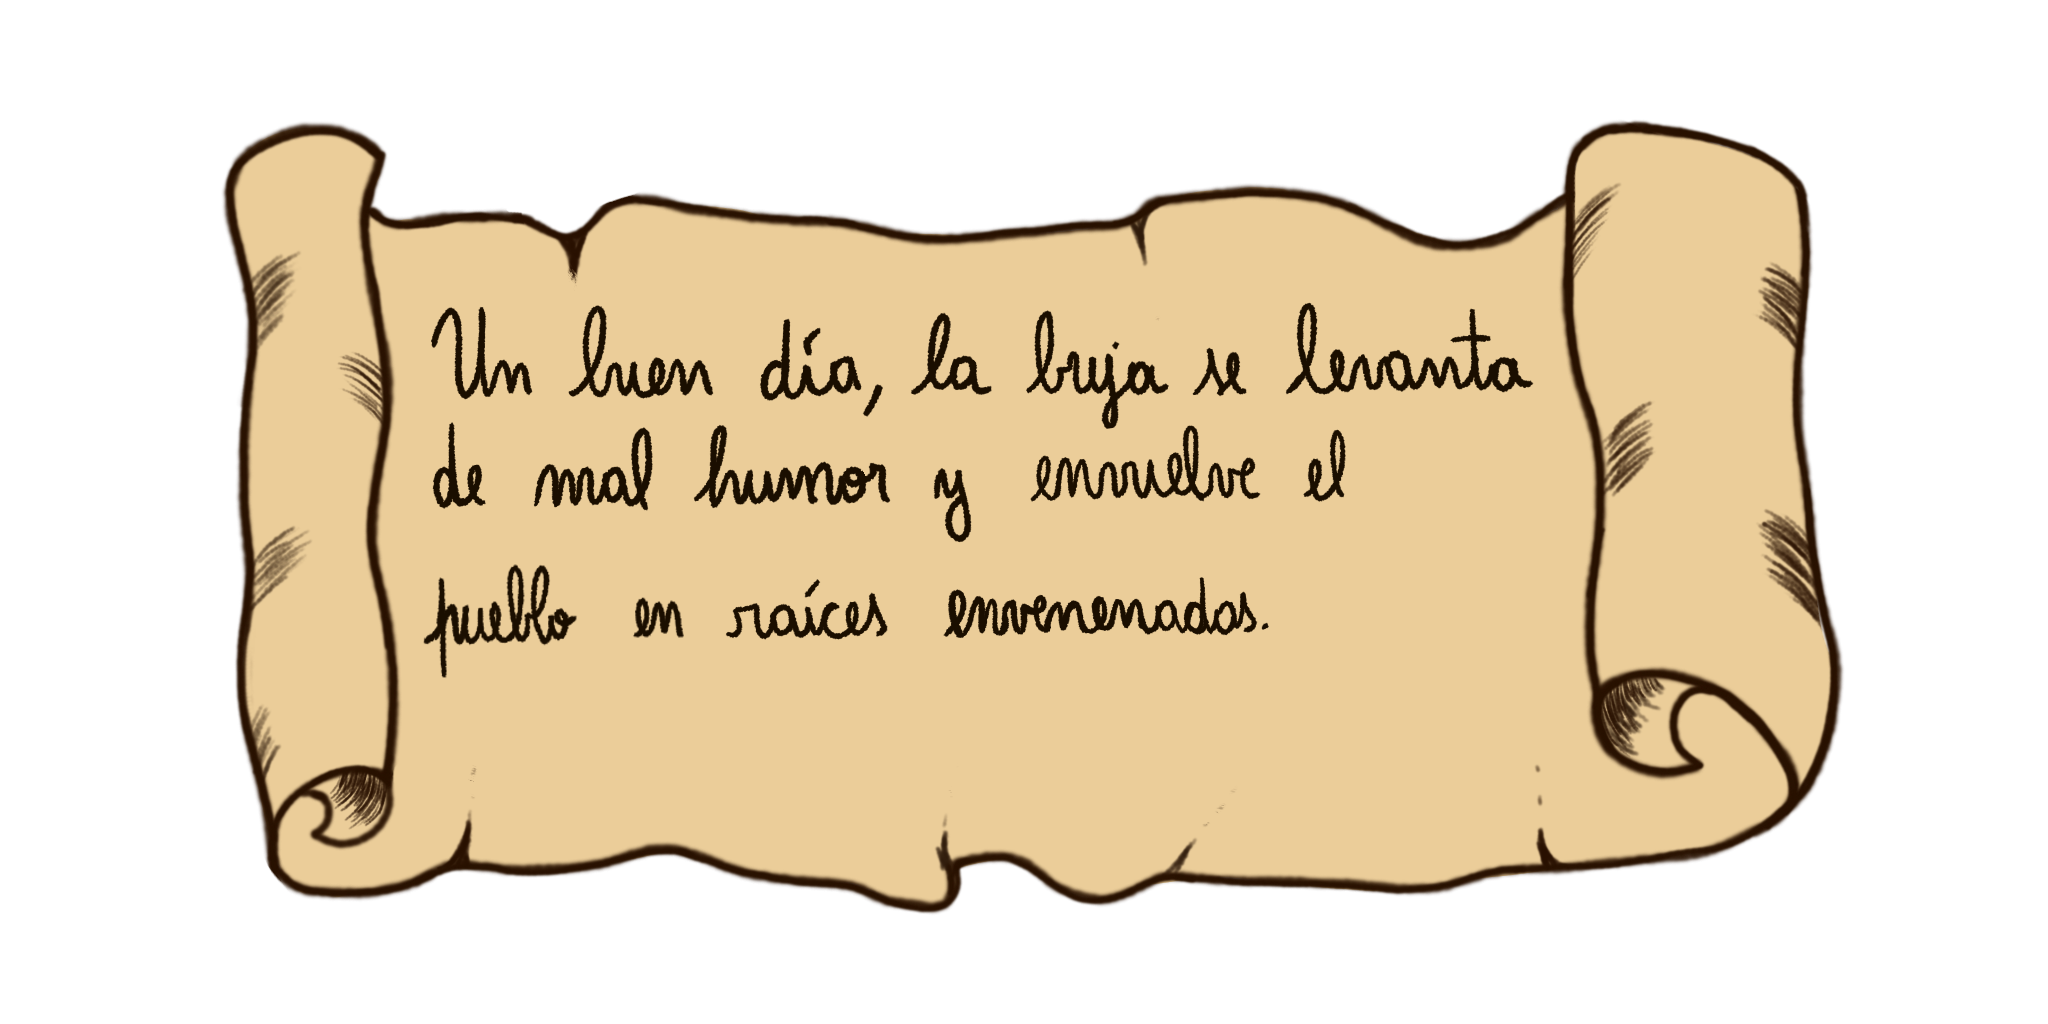 Un buen día, la bruja se levanta
de mal humor y envuelve el
pueblo en raíces envenenadas.